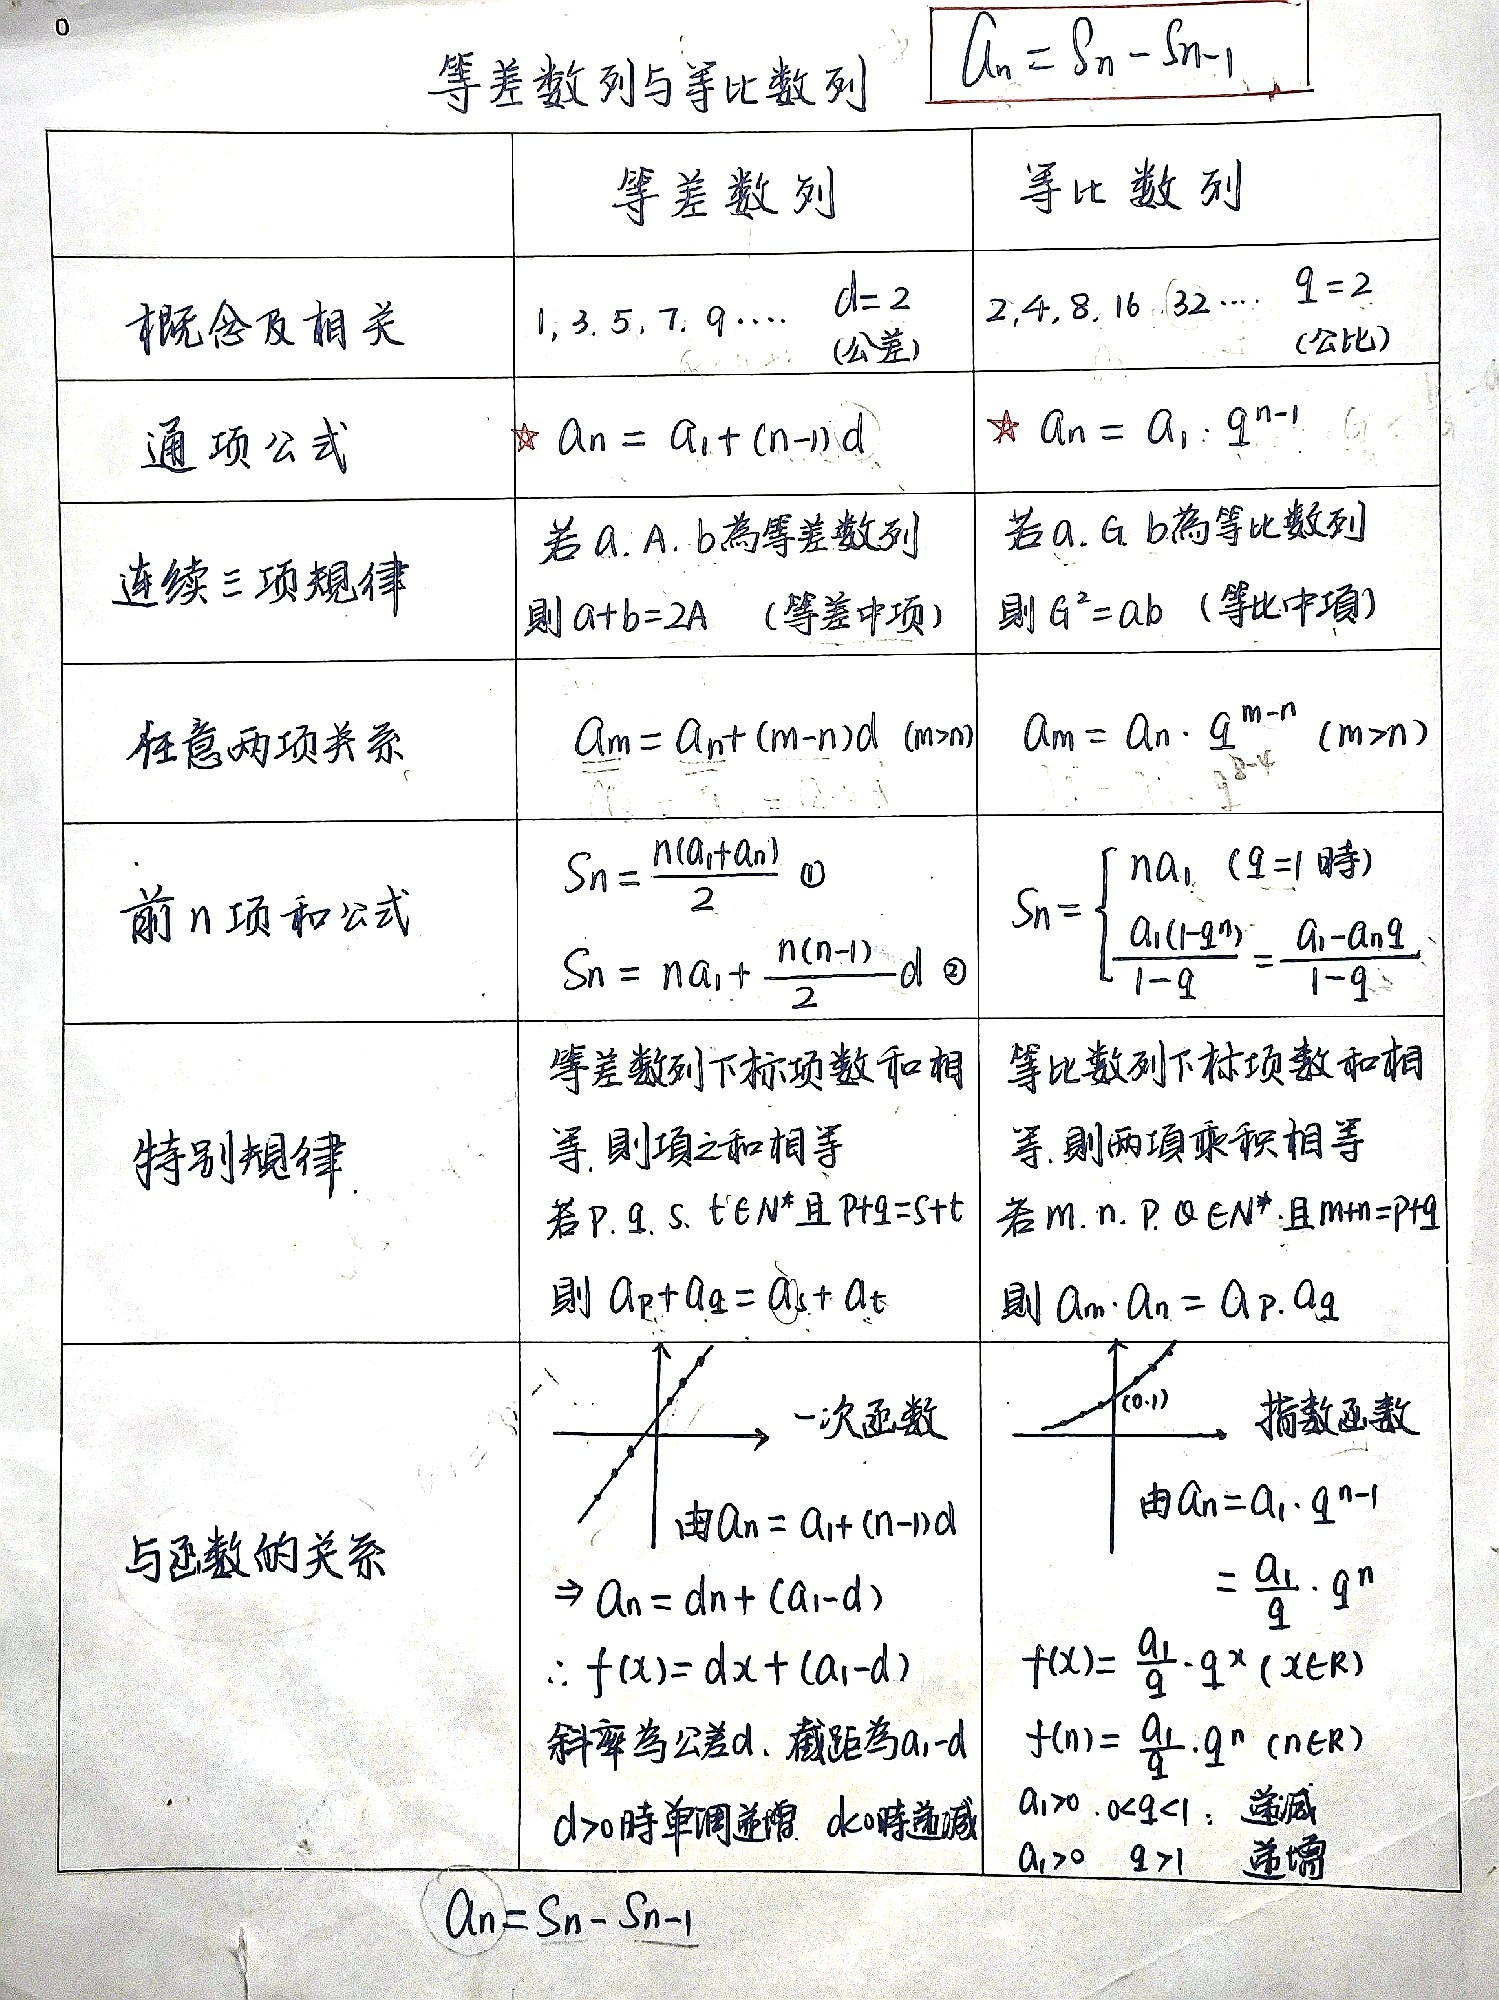 0
等差数列与等比数列
an = Sn - Sn-1
等差数列
等比数列
概念及相关
1, 3. 5, 7. 9 ····
d = 2
(公差)
2, 4, 8, 16 .32 ····
q = 2
(公比)
通项公式
☆ an = a1 + (n-1)d
☆ an = a1 · q^(n-1)
连续三项规律
若 a. A. b 為等差数列
則 a+b=2A (等差中项)
若 a. G. b 為等比数列
則 G²=ab (等比中項)
任意两项关系
am = an + (m-n)d (m>n)
am = an · q^(m-n) (m>n)
q^(8-4)
前n项和公式
Sn = n(a1+an)/2 ①
Sn = na1 + n(n-1)/2 d ②
Sn = { na1 (q=1時)
a1(1-q^n)/(1-q) = (a1-anq)/(1-q)
特别规律
等差数列下标项数和相
等.則項之和相等
若 p. q. s. t∈N* 且 p+q=s+t
則 ap+aq = as+at
等比数列下标项数和相
等.則两項乘积相等
若 m. n. p. Q∈N*.且 m+n=p+q
則 am·an = ap.aq
与函数的关系
一次函数
由 an = a1+(n-1)d
⇒ an = dn+(a1-d)
∴ f(x) = dx+(a1-d)
斜率為公差d、截距為a1-d
d>0時单调递增 d<0時递减
(0.1)
指数函数
由 an = a1 · q^(n-1)
= a1/q · q^n
f(x) = a1/q · q^x (x∈R)
f(n) = a1/q · q^n (n∈R)
a1>0 . 0<q<1 : 递减
a1>0 q>1 递增
an = Sn - Sn-1